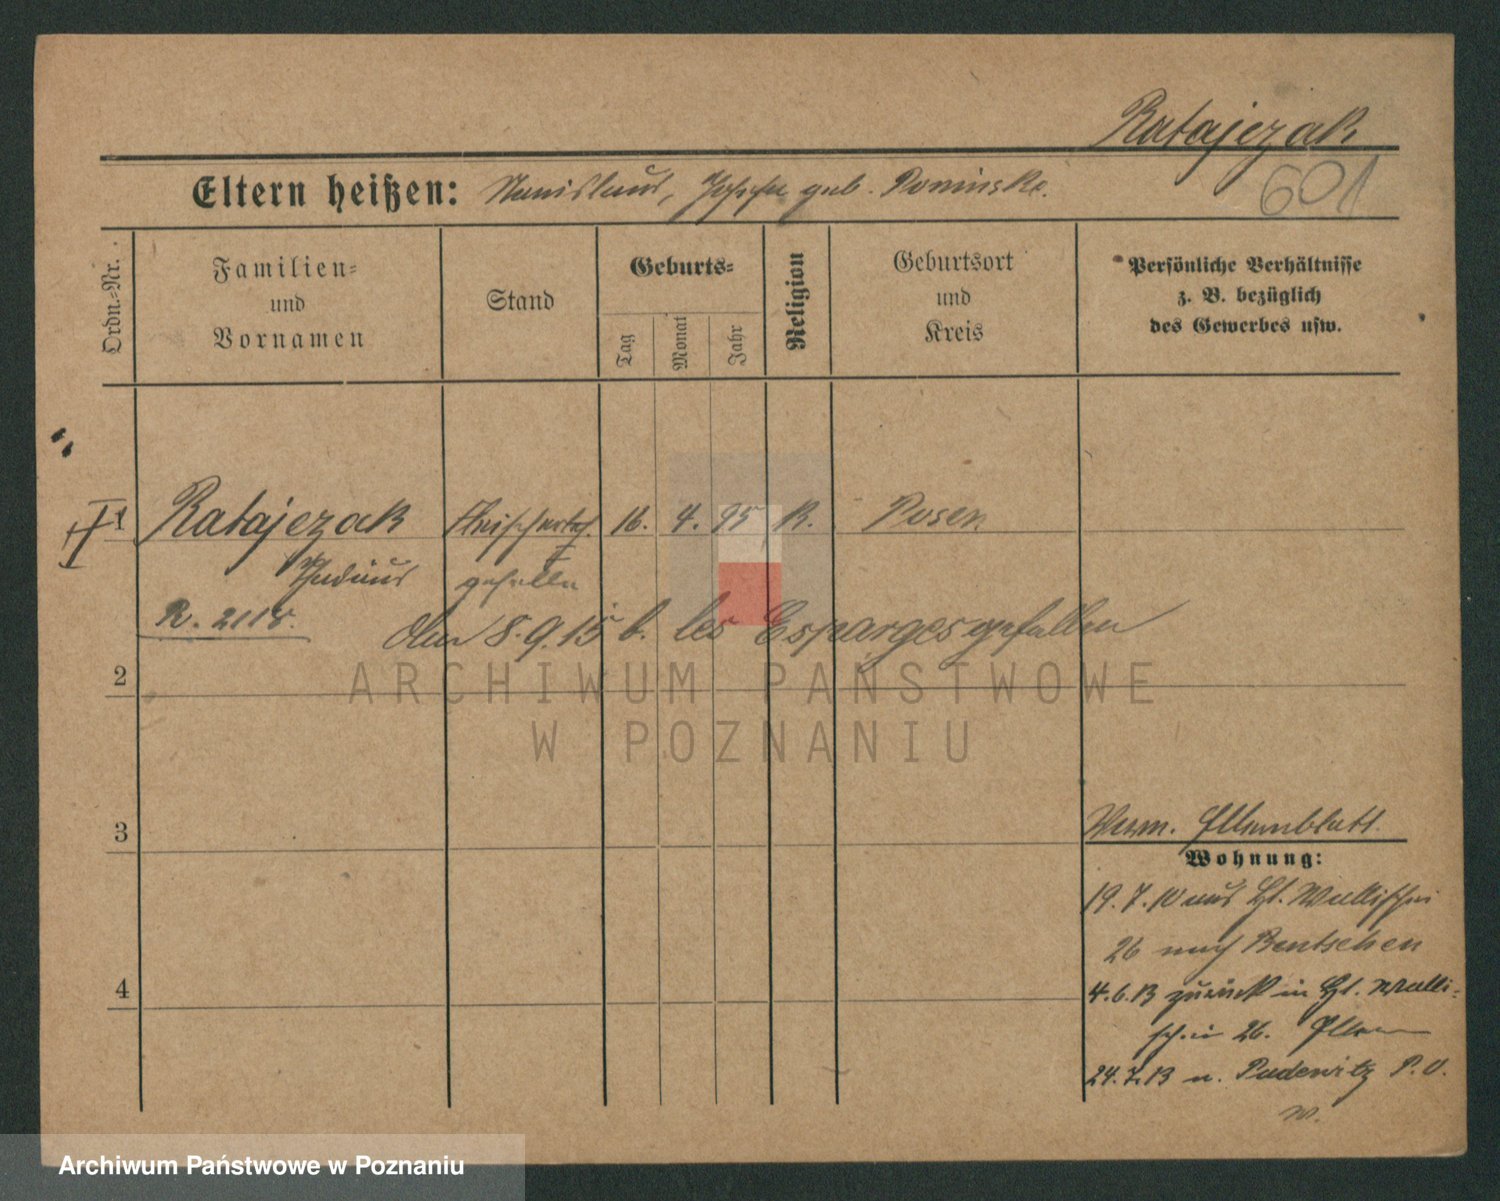 Ratajczak
601
Eltern heißen: Stanislaus, Josefa geb. Pominska.
Ordn.-Nr.
Familien-
und
Vornamen
Stand
Geburts-
Tag
Monat
Jahr
Religion
Geburtsort
und
Kreis
Persönliche Verhältnisse
z. B. bezüglich
des Gewerbes usw.
1 Ratajczak 16. 4. 95 K. Posen
gefallen
R. 2118.
den 8.9.15 b. les Esparges gefallen
2
ARCHIWUM PAŃSTWOWE
W POZNANIU
3
Verm. Elternblatt
Wohnung:
19.7.10 aus Gt. Wallischei
26 nach Bentschen
4
4.6.13 zurück in Gt. Walli-
schei 26. Eltern
24.7.13 n. Pudewitz P.O.
w.
Archiwum Państwowe w Poznaniu